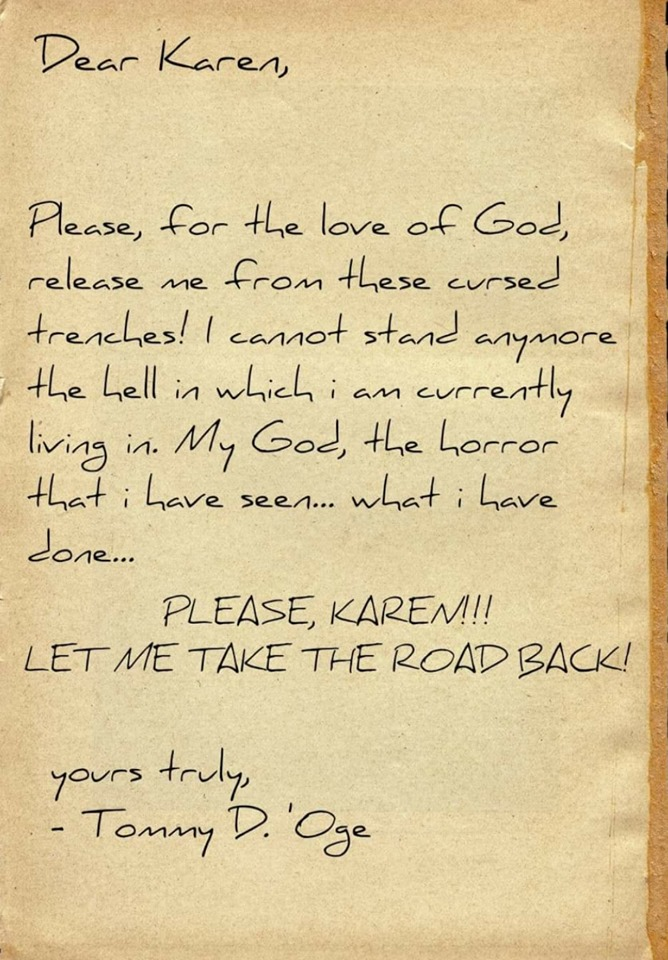 Dear Karen,
Please, for the love of God,
release me from these cursed
trenches! I cannot stand anymore
the hell in which i am currently
living in. My God, the horror
that i have seen... what i have
done...
PLEASE, KAREN!!!
LET ME TAKE THE ROAD BACK!
yours truly,
- Tommy D. 'Oge